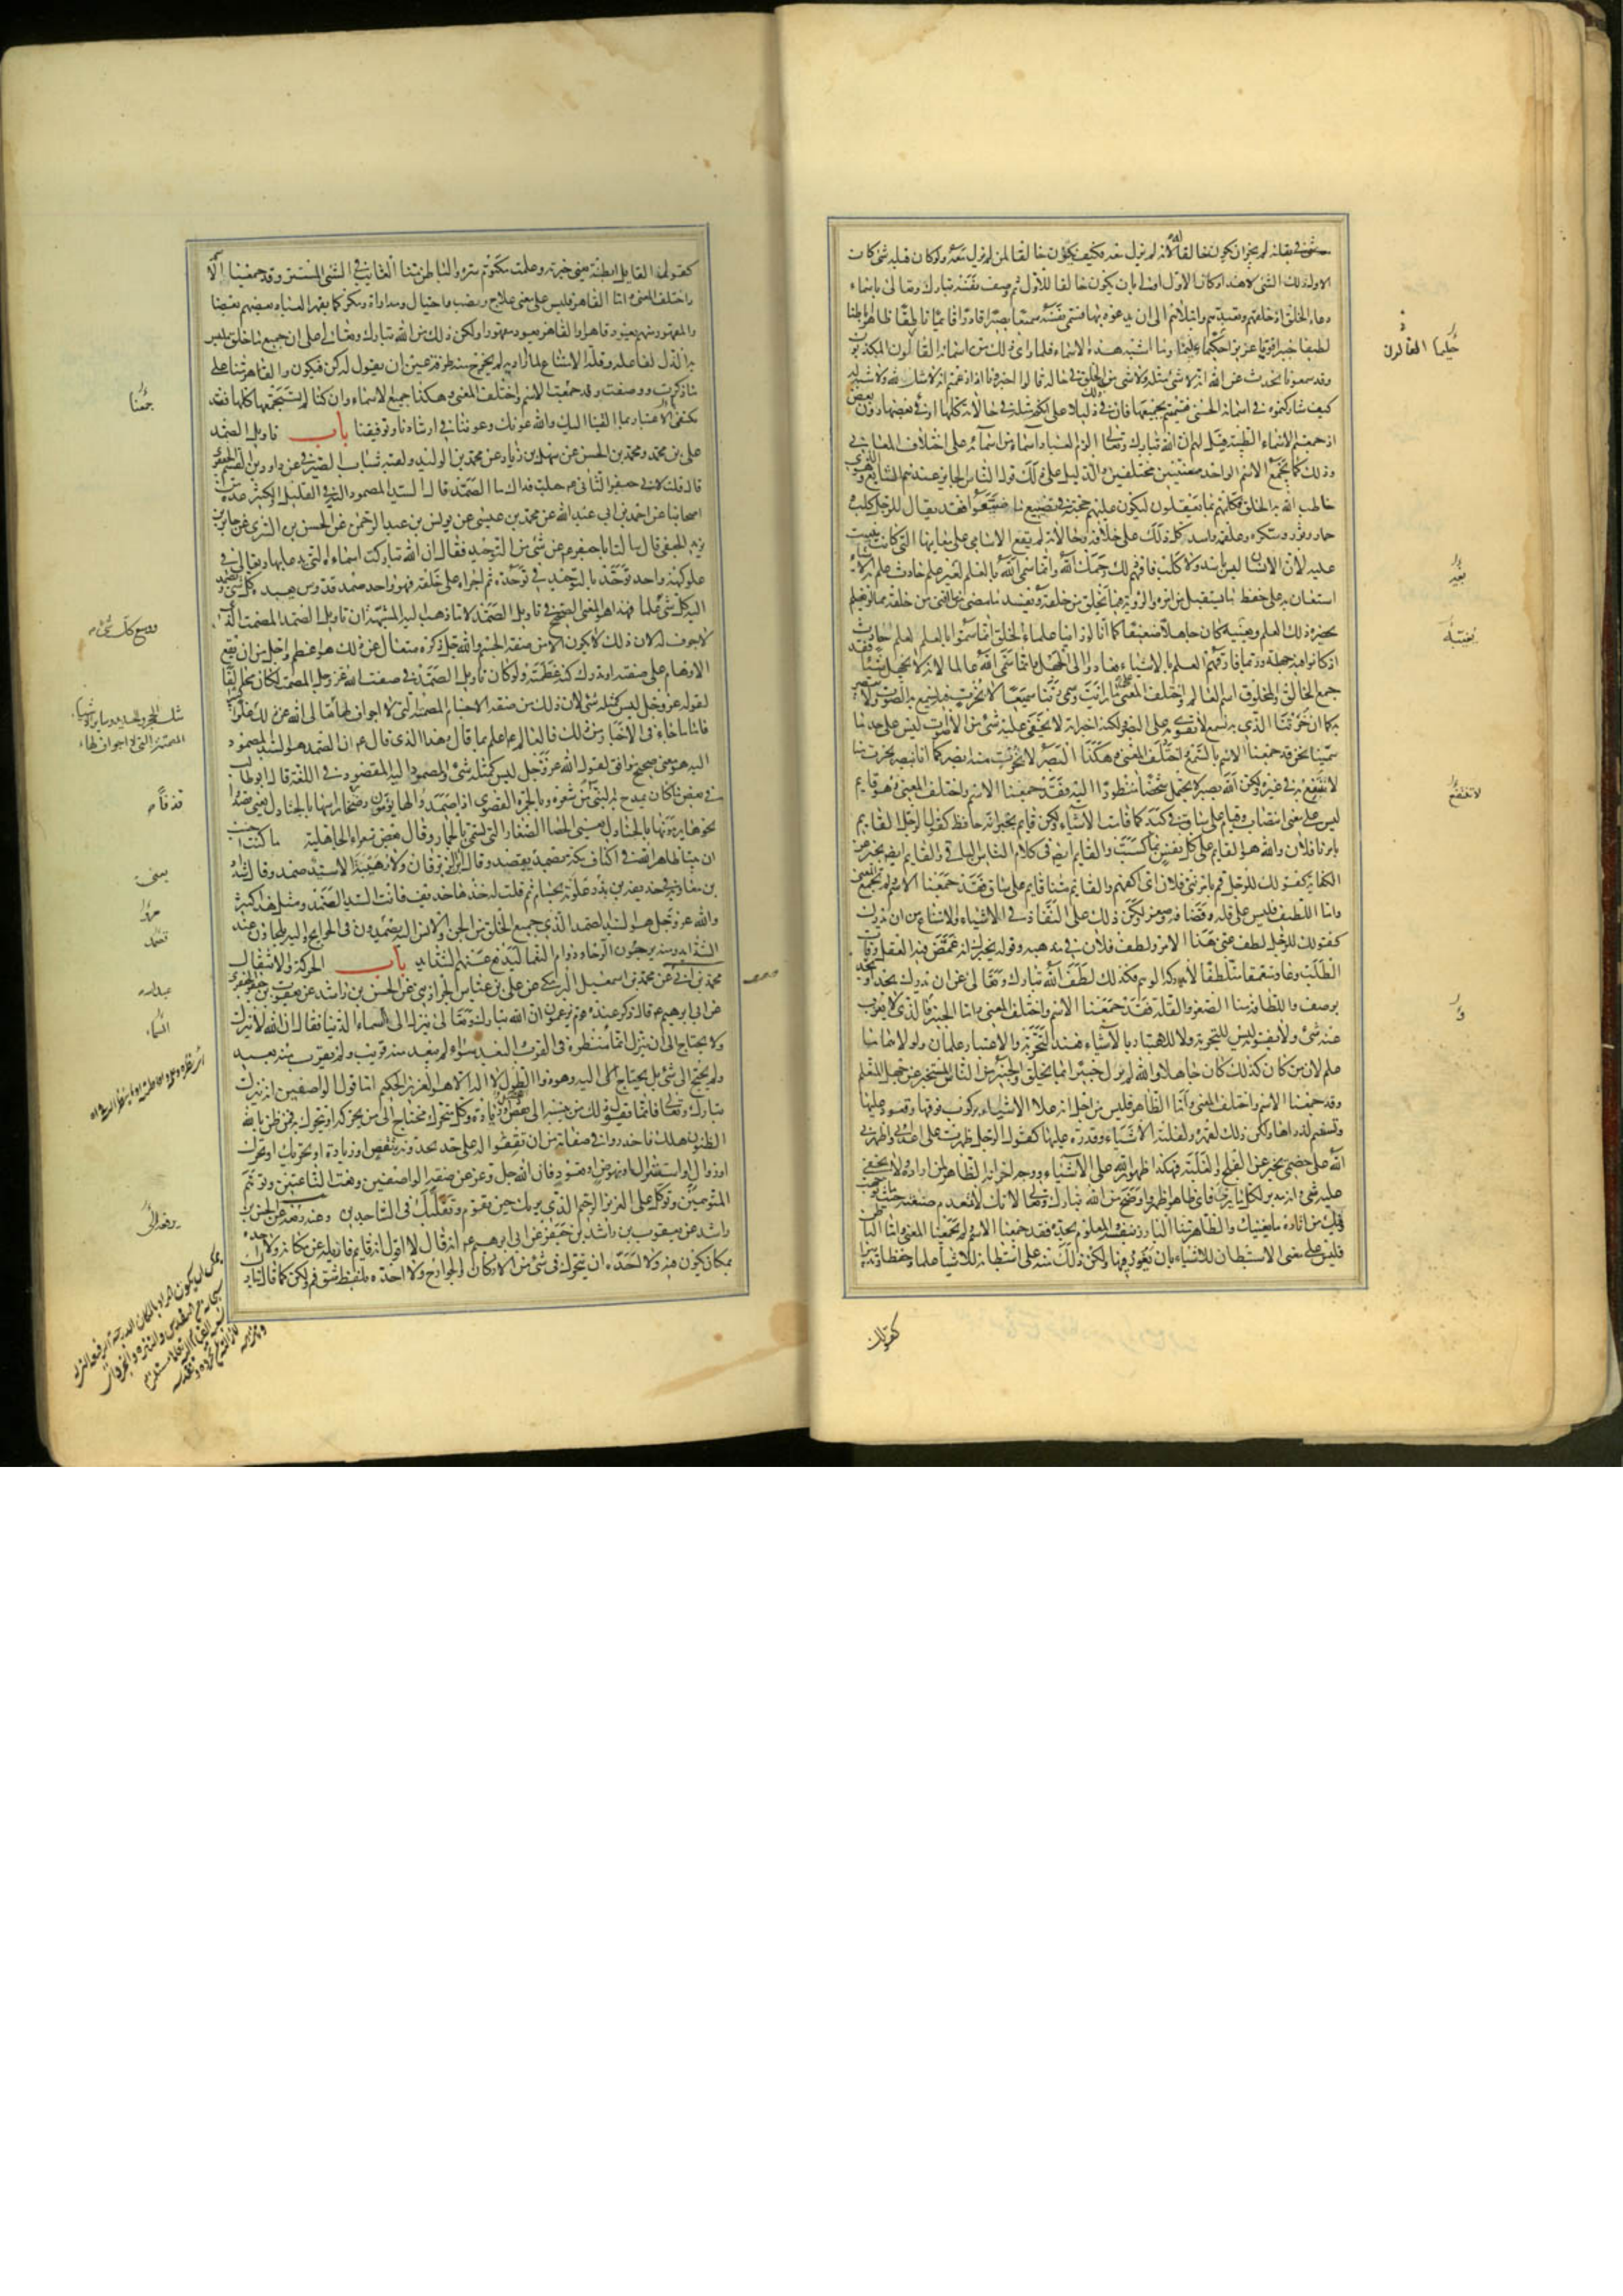 شئ في بقائه لم يجز ان يكون خالقا له لانه لم يزل معه فكيف يكون خالقا لمن لم يزل معه ولو كان قبله شئ كان
الاول ذلك الشئ لا هذا وكان الاول اولى بان يكون خالقا للاول ثم وصف نفسه تبارك وتعالى باسماء
دعاء الخلق اذ خلقهم وتعبدهم وابتلاهم الى ان يدعوه بها فسمى نفسه سميعا بصيرا قادرا قائما ناطقا ظاهرا باطنا
لطيفا خبيرا قويا عزيزا حكيما عليما وما اشبه هذه الاسماء فلما راى ذلك من اسمائه القالون المكذبون
وقد سمعونا نحدث عن الله انه لا شئ مثله ولا شئ من الخلق في حاله قالوا اخبرونا اذا زعمتم انه لا مثل لله ولا شبه له
كيف شاركتموه في اسمائه الحسنى فتسميتم بجميعها فان في ذلك دليلا على انكم مثله في حالاته كلها او في بعضها دون بعض
اذ جمعتم الاسماء الطيبة قيل لهم ان الله تبارك وتعالى الزم العباد اسماء من اسمائه على اختلاف المعاني
وذلك كما يجمع الاسم الواحد معنيين مختلفين والدليل على ذلك قول الناس الجايز عندهم الشايع وهو الذي
خاطب الله به الخلق فكلمهم بما يعقلون ليكون عليهم حجة في تضييع ما ضيعوا فقد يقال للرجل كلب
حمار وثور وسكره وعلقمه واسد كل ذلك على خلافه وحالاته لم يقع الاسامي على معانيها التي كانت بنيت
عليه لان الانسان ليس باسد ولا كلب فافهم ذلك رحمك الله وانما سمي الله بالعلم لغير علم حادث علم به الاشياء
استعان به على حفظ ما يستقبل من امره والروية فيما يخلق من خلقه ويفسد ما مضى مما افنى من خلقه مما لو لم
يحضره ذلك العلم ويغيبه كان جاهلا ضعيفا كما انا لو راينا علماء الخلق انما سموا بالعلم لعلم حادث
اذ كانوا فيه جهلة وربما فارقهم العلم بالاشياء فعادوا الى الجهل وانما سمي الله عالما لانه لا يجهل شيئا فقد
جمع الخالق والمخلوق اسم العالم واختلف المعنى على ما رايت وسمي ربنا سميعا لا بخرت فيه يسمع به الصوت ولا يبصر
به كما ان خرتنا الذي به نسمع لا نقوى به على البصر ولكنه اخبر انه لا يخفى عليه شئ من الاصوات ليس على حد ما
سمينا نحن فقد جمعنا الاسم بالسمع واختلف المعنى وهكذا البصر لا بخرت منه ابصر كما انا نبصر بخرت منا
لا ننتفع به في غيره ولكن الله بصير لا يحتمل شخصا منظورا اليه فقد جمعنا الاسم واختلف المعنى وهو قايم
ليس على معنى انتصاب وقيام على ساق في كبد كما قامت الاشياء ولكن قايم يخبر انه حافظ كقول الرجل القايم
بامرنا فلان والله هو القايم على كل نفس بما كسبت والقايم ايض في كلام الناس الباقي والقايم ايض يخبر عن
الكفاية كقولك للرجل قم بامر بني فلان اي اكفهم والقايم منا قايم على ساق فقد جمعنا الاسم ولم نجمع المعنى
واما اللطيف فليس على قلة وقضافة وصغر ولكن ذلك على النفاذ في الاشياء والامتناع من ان يدرك
كقولك للرجل لطف عني هذا الامر ولطف فلان في مذهبه وقوله يخبرك انه غمض فيه العقل وفات
الطلب وعاد متعمقا متلطفا لا يدركه الوهم فكذلك لطف الله تبارك وتعالى عن ان يدرك بحد او يحد
بوصف واللطافة منا الصغر والقلة فقد جمعنا الاسم واختلف المعنى واما الخبير فالذي لا يعزب
عنه شئ ولا يفوته ليس للتجربة ولا للاعتبار بالاشياء فعند التجربة والاعتبار علمان ولولاهما ما
علم لان من كان كذلك كان جاهلا والله لم يزل خبيرا بما يخلق والخبير من الناس المستخبر عن جهل المتعلم
وقد جمعنا الاسم واختلف المعنى واما الظاهر فليس من اجل انه علا الاشياء بركوب فوقها وقعود عليها
وتسنم لذراها ولكن ذلك لقهره ولغلبته الاشياء وقدرته عليها كقول الرجل ظهرت على اعدائي واظهرني
الله على خصمي يخبر عن الفلج والغلبة فهكذا ظهور الله على الاشياء ووجه اخر انه الظاهر لمن اراده ولا يخفى
عليه شئ وانه مدبر لكل ما برأ فاي ظاهر اظهر واوضح من الله تبارك وتعالى لانك لا تعدم صنعته حيثما توجهت
وفيك من اثاره ما يغنيك والظاهر منا البارز بنفسه والمعلوم بحده فقد جمعنا الاسم ولم يجمعنا المعنى واما الباطن
فليس على معنى الاستبطان للاشياء بان يغور فيها ولكن ذلك منه على استبطانه للاشياء علما وحفظا وتدبيرا
كقول
حكيما القالون
بعد
يغيبه
لا ننتفع
كقول القايل ابطنته يعني خبرته وعلمت مكتوم سره والباطن منا الغايب في الشئ المستتر وقد جمعنا الاسم
واختلف المعنى واما القاهر فليس على معنى علاج ونصب واحتيال ومداراة ومكر كما يقهر العباد بعضهم بعضا
والمقهور منهم يعود قاهرا والقاهر يعود مقهورا ولكن ذلك من الله تبارك وتعالى على ان جميع ما خلق ملبس
به الذل لفاعله وقلة الامتناع لما اراد به لم يخرج منه طرفة عين ان يقول له كن فيكون والقاهر منا على
ما ذكرت ووصفت وقد جمعنا الاسم واختلف المعنى وهكذا جميع الاسماء وان كنا لم نستجمعها كلها فقد
يكتفى الاعتبار بما القينا اليك والله عونك وعوننا في ارشادنا وتوفيقنا باب تاويل الصمد
علي بن محمد ومحمد بن الحسن عن سهل بن زياد عن محمد بن الوليد ولقبه شباب الصيرفي عن داود بن القسم الجعفري
قال قلت لابي جعفر الثاني ع جعلت فداك ما الصمد قال السيد المصمود اليه في القليل والكثير عدة من
اصحابنا عن احمد بن ابي عبد الله عن محمد بن عيسى عن يونس بن عبد الرحمن عن الحسن بن السري عن جابر بن
يزيد الجعفي قال سالت ابا جعفر ع عن شئ من التوحيد فقال ان الله تباركت اسماءه التي يدعى بها وتعالى في
علو كنهه واحد توحد بالتوحيد في توحده ثم اجراه على خلقه فهو واحد صمد قدوس يعبده كل شئ ويصمد
اليه كل شئ علما فهذا هو المعنى الصحيح في تاويل الصمد لا ما ذهب اليه المشبهة ان تاويل الصمد المصمت الذي
لا جوف له لان ذلك لا يكون الا من صفة الجسم والله جل ذكره متعال عن ذلك هو اعظم واجل من ان يقع
الاوهام على صفته او تدرك كنه عظمته ولو كان تاويل الصمد في صفت الله عز وجل المصمت لكان مخالفا
لقوله عز وجل ليس كمثله شئ لان ذلك من صفة الاجسام المصمتة التي لا اجواف لها تعالى الله عن ذلك علوا كبيرا
فاما ما جاء في الاخبار من ذلك فالعالم ع اعلم بما قال وهذا الذي قال ع ان الصمد هو السيد المصمود
اليه هو معنى صحيح موافق لقول الله عز وجل ليس كمثله شئ والمصمود اليه المقصود في اللغة قال ابو طالب
في بعض ما كان يمدح به النبي ص من شعره وبالجمرة القصوى اذا صمدوا لها يؤمون رضخا راسها بالجنادل يعني قصدوا
نحوها يرمونها بالجنادل يعني الحصا الصغار التي تسمى بالجمار وقال بعض شعراء الجاهلية ما كنت احسب
ان بيتا ظاهرا لله في اكناف مكة يصمد يعني يقصد وقال ابن الزبرقان ولا رهيبة الا سيد صمد وقال شداد
بن معاوية في حذيفة بن بدر علوته بحسام ثم قلت له خذها حذيف فانت السيد الصمد ومثل هذا كثير
والله عز وجل هو السيد الصمد الذي جميع الخلق من الجن والانس اليه يصمدون في الحوايج واليه يلجاون عند
الشدايد ومنه يرجون الرخاء ودوام النعما ليدفع عنهم الشدايد باب الحركة والانتقال
محمد بن ابي عبد الله عن محمد بن اسمعيل البرمكي عن علي بن عباس الجراذيني عن الحسن بن راشد عن يعقوب بن جعفر الجعفري
عن ابي ابرهيم ع قال ذكر عنده قوم يزعمون ان الله تبارك وتعالى ينزل الى السماء الدنيا فقال ان الله لا ينزل
ولا يحتاج الى ان ينزل انما منظره في القرب والبعد سواء لم يبعد منه قريب ولم يقرب منه بعيد
ولم يحتج الى شئ بل يحتاج اليه وهو ذو الطول لا اله الا هو العزيز الحكيم اما قول الواصفين انه ينزل
تبارك وتعالى فانما يقول ذلك من ينسبه الى نقص او زيادة وكل متحرك محتاج الى من يحركه او يتحرك به فمن ظن بالله
الظنون هلك فاحذروا في صفاته من ان تقفوا له على حد تحدونه بنقص او زيادة او تحريك او تحرك
او زوال او استنزال او نهوض او قعود فان الله جل وعز عن صفة الواصفين ونعت الناعتين وتوهم
المتوهمين وتوكل على العزيز الرحيم الذي يراك حين تقوم وتقلبك في الساجدين وعنه رفعه عن الحسن بن
راشد عن يعقوب بن جعفر عن ابي ابرهيم ع انه قال لا اقول انه قايم فازيله عن مكانه ولا احده
بمكان يكون فيه ولا احده ان يتحرك في شئ من الاركان والجوارح ولا احده بلفظ شق فم ولكن كما قال تبارك
جمعنا
ووسع كل شئ
مثل الحجر والحديد وساير الاشياء
المصمتة التي لا اجواف لها
قذفا
يعني
عبد الله
السماء
رفعه